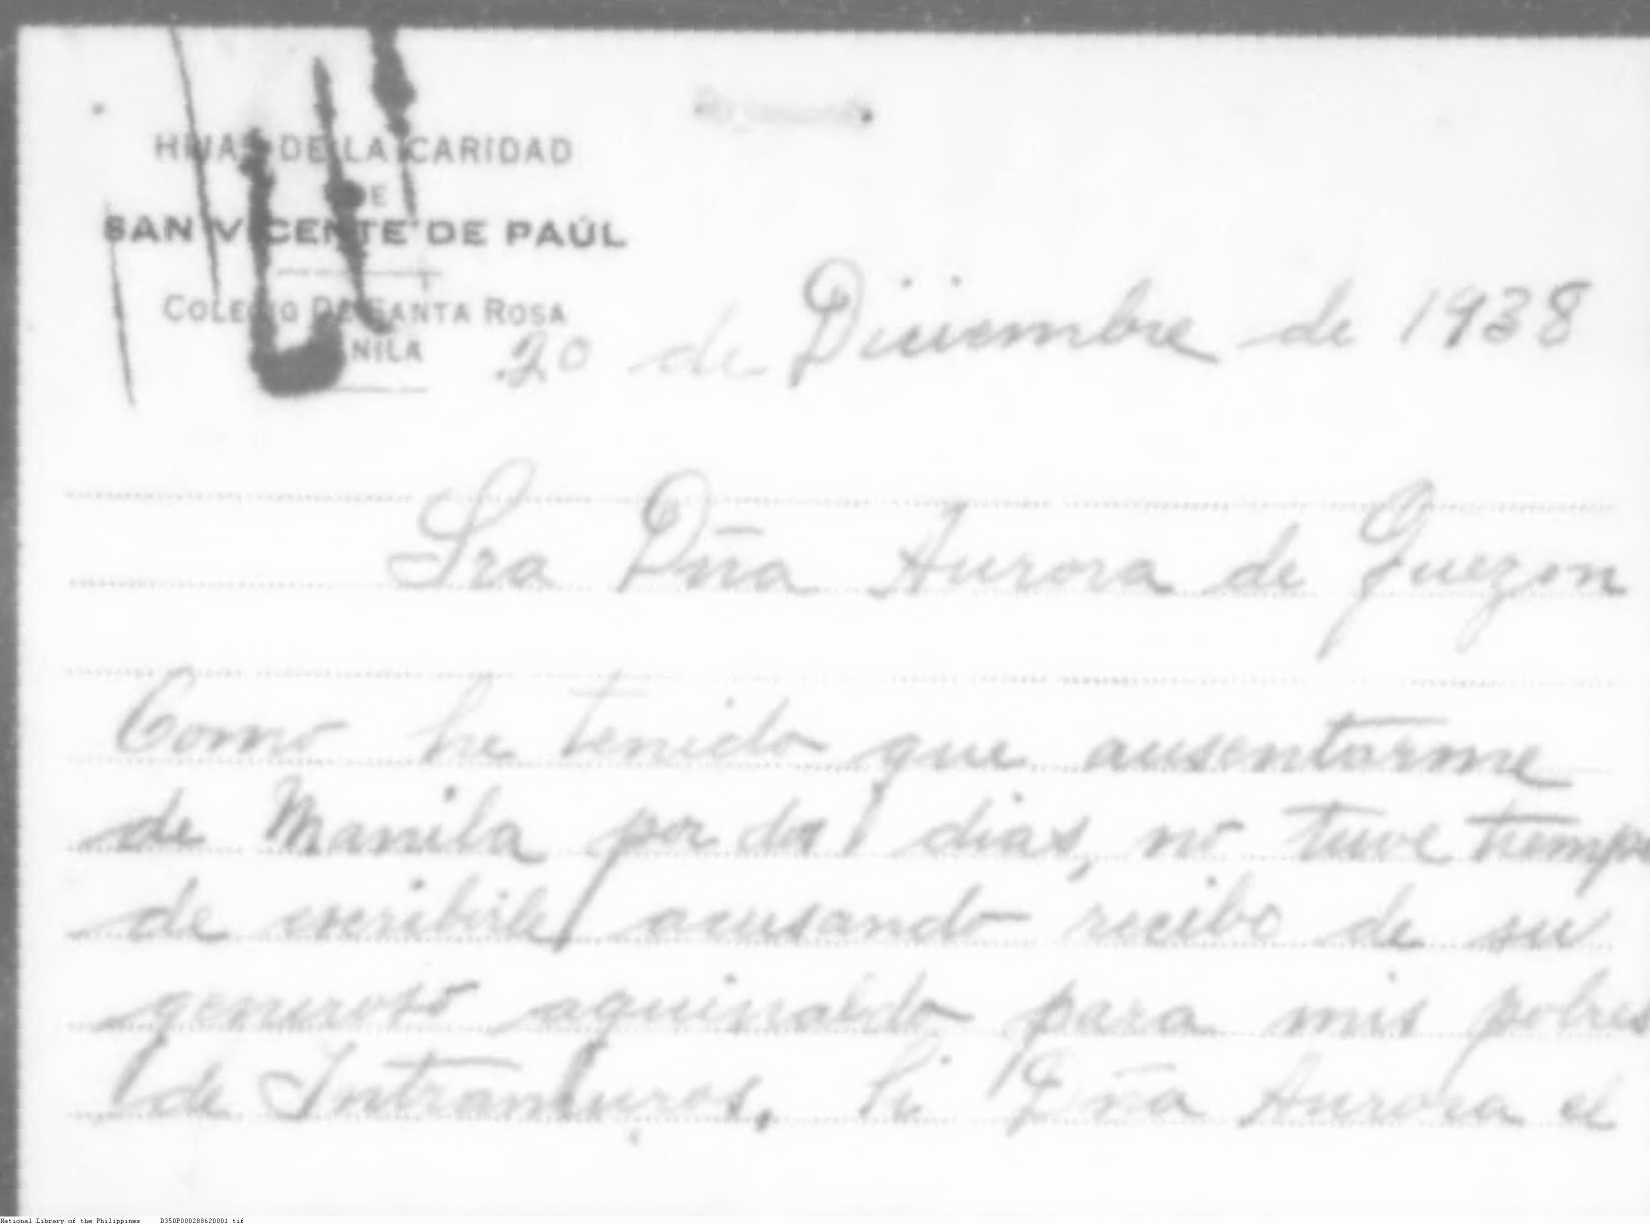 HIJAS DE LA CARIDAD
DE
SAN VICENTE DE PAÚL
COLEGIO DE SANTA ROSA
MANILA
20 de Diciembre de 1938
Sra Dña Aurora de Quezon
Como he tenido que ausentarme
de Manila por dos dias, no tuve tiempo
de escribirle acusando recibo de su
generoso aguinaldo para mis pobres
de Intramuros. Si Dña Aurora el
National Library of the Philippines D350P000288620001.tif